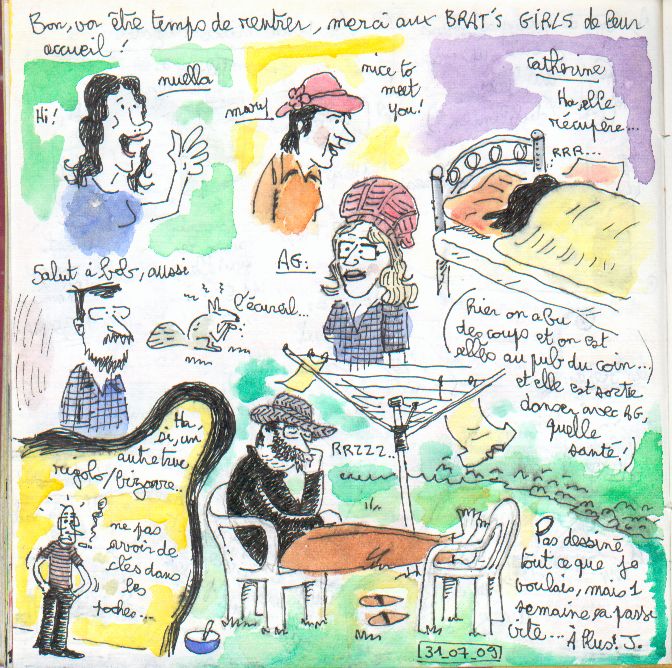 Bon, va être temps de rentrer, merci aux BRAT'S GIRLS de leur
accueil !
nuella
Hi !
mary
nice to
meet
you !
catherine
Ha, elle
récupère...
RRR...
Salut à bob, aussi
l'écureuil...
AG:
hier on a bu
des coups et on est
allés au pub du coin...
et elle est sortie
danser avec AG,
quelle
santé !
Ha,
si, un
autre truc
rigolo/bizarre..
ne pas
avoir de
clés dans
les
poches...
RRZZZ...
Pas dessiné
tout ce que je
voulais, mais 1
semaine ça passe
vite... À Plus ! J.
31.07.09